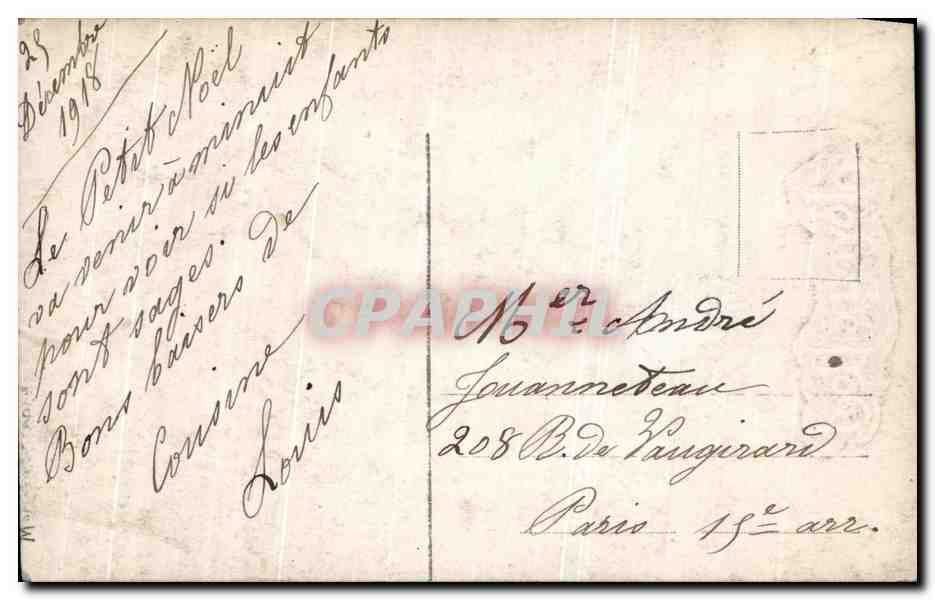 25
Décembre
1918
Le Petit Noël
va venir à minuit
pour voir si les enfants
sont sages.
Bons baisers de
Cousine
Loris
CPAPHIL
Mer André
Jouanneteau
208 R. de Vaugirard
Paris 15e arr.